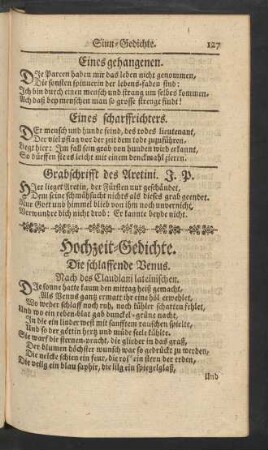 Sinn-Gedichte. 127
Eines gehangenen.
DIe Parcen haben mir das leben nicht genommen,
Die sonsten spinnerin der lebens-faden sind:
Ich bin durch einen mensch und strang um selbes kommen,
Ach daß bey menschen man so grosse strenge findt!
Eines scharffrichters.
DEr mensch und hunde feind, des todes lieutenant,
Der viel pflag vor der zeit dem tode zuzuführen,
Liegt hier: Im fall sein grab von hunden wird erkannt,
So dürffen sie es leicht mit einem denckmahl zieren.
Grabschrifft des Aretini. J. P.
HIer lieget Aretin, der Fürsten nur geschändet,
Dem seine schmähsucht nichts als dieses grab geendet.
Nur Gott und himmel blieb von ihm noch unvernicht,
Verwunder dich nicht drob: Er kannte beyde nicht.
Hochzeit-Gedichte.
Die schlaffende Venus.
Nach des Claudiani lateinischen.
DIe sonne hatte kaum den mittag heiß gemacht,
Als Venus gantz ermatt ihr eine höl erwehlet,
Wo weder schlaff noch ruh, noch kühler schatten fehlet,
Und wo ein reben-blat gab dunckel-grüne nacht,
In die ein linder west mit sanfftem rauschen spielte,
Und so der göttin hertz und müde seele kühlte.
Sie warf die sternen-pracht, die glieder in das graß,
Der blumen höchster wunsch war so gedrückt zu werden,
Die nelcke schien ein feur, die ros' ein stern der erden,
Die veilg ein blau saphir, die lilg ein spiegelglaß,
Und